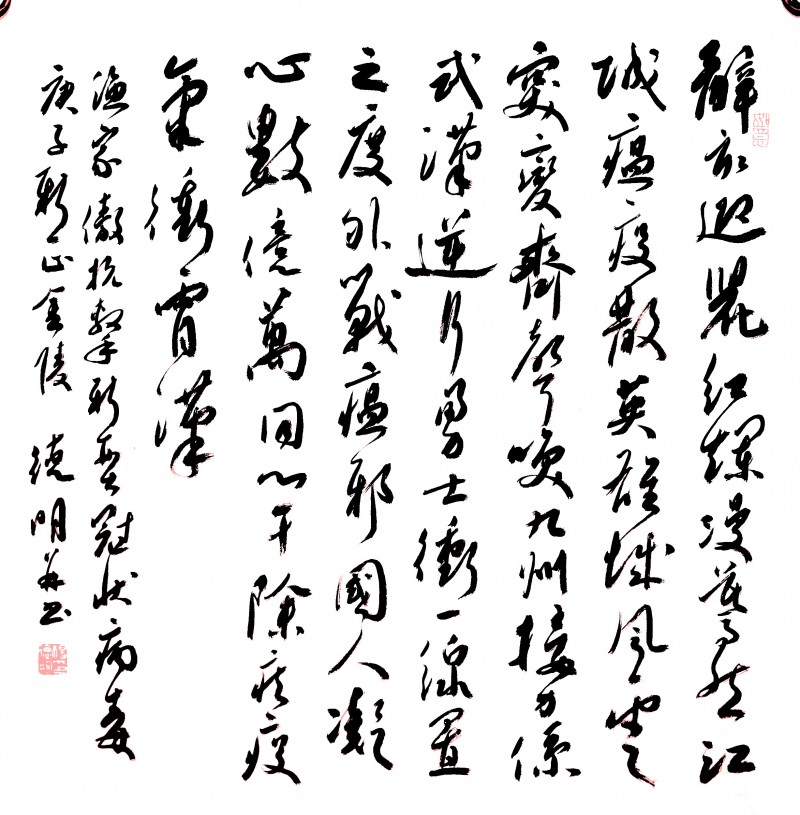 辭亥迎鼠紅爛漫驀然江
城瘟疫散英雄城風雲
突變齊聲喚九州接力係
武漢逆行勇士衝一線置
之度外戰瘟邪國人凝
心數億萬同心干除疾疫
氣衝霄漢
漁家傲抗擊新型冠狀病毒
庚子新正金陵 德明並書